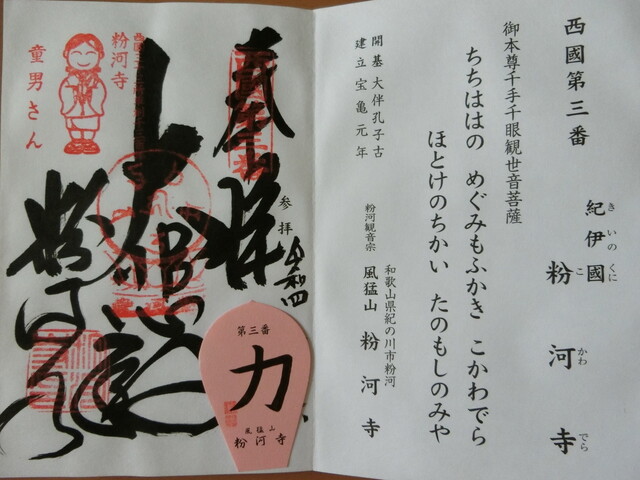 西國第三番
紀伊國
き いの くに
粉河寺
こ かわ でら
御本尊千手千眼観世音菩薩
ちちははの めぐみもふかき こかわでら
ほとけのちかい たのもしのみや
開基 大伴孔子古
建立 宝亀元年
和歌山県紀の川市粉河
粉河観音宗 風猛山 粉河寺
奉拝
参拝 令和四
大悲殿
粉河寺
粉河寺
童男さん
第三番
力
風猛山
粉河寺